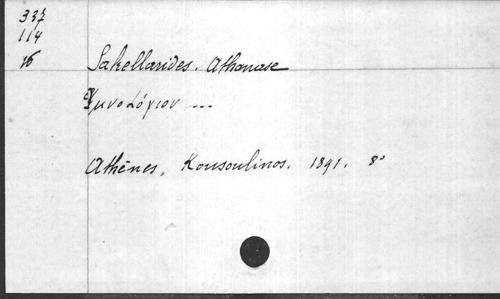 337
114
16
Sakellarides. Athanase
Ὑμνολόγιον ...
Athènes, Kousoulinos. 1891. 8°